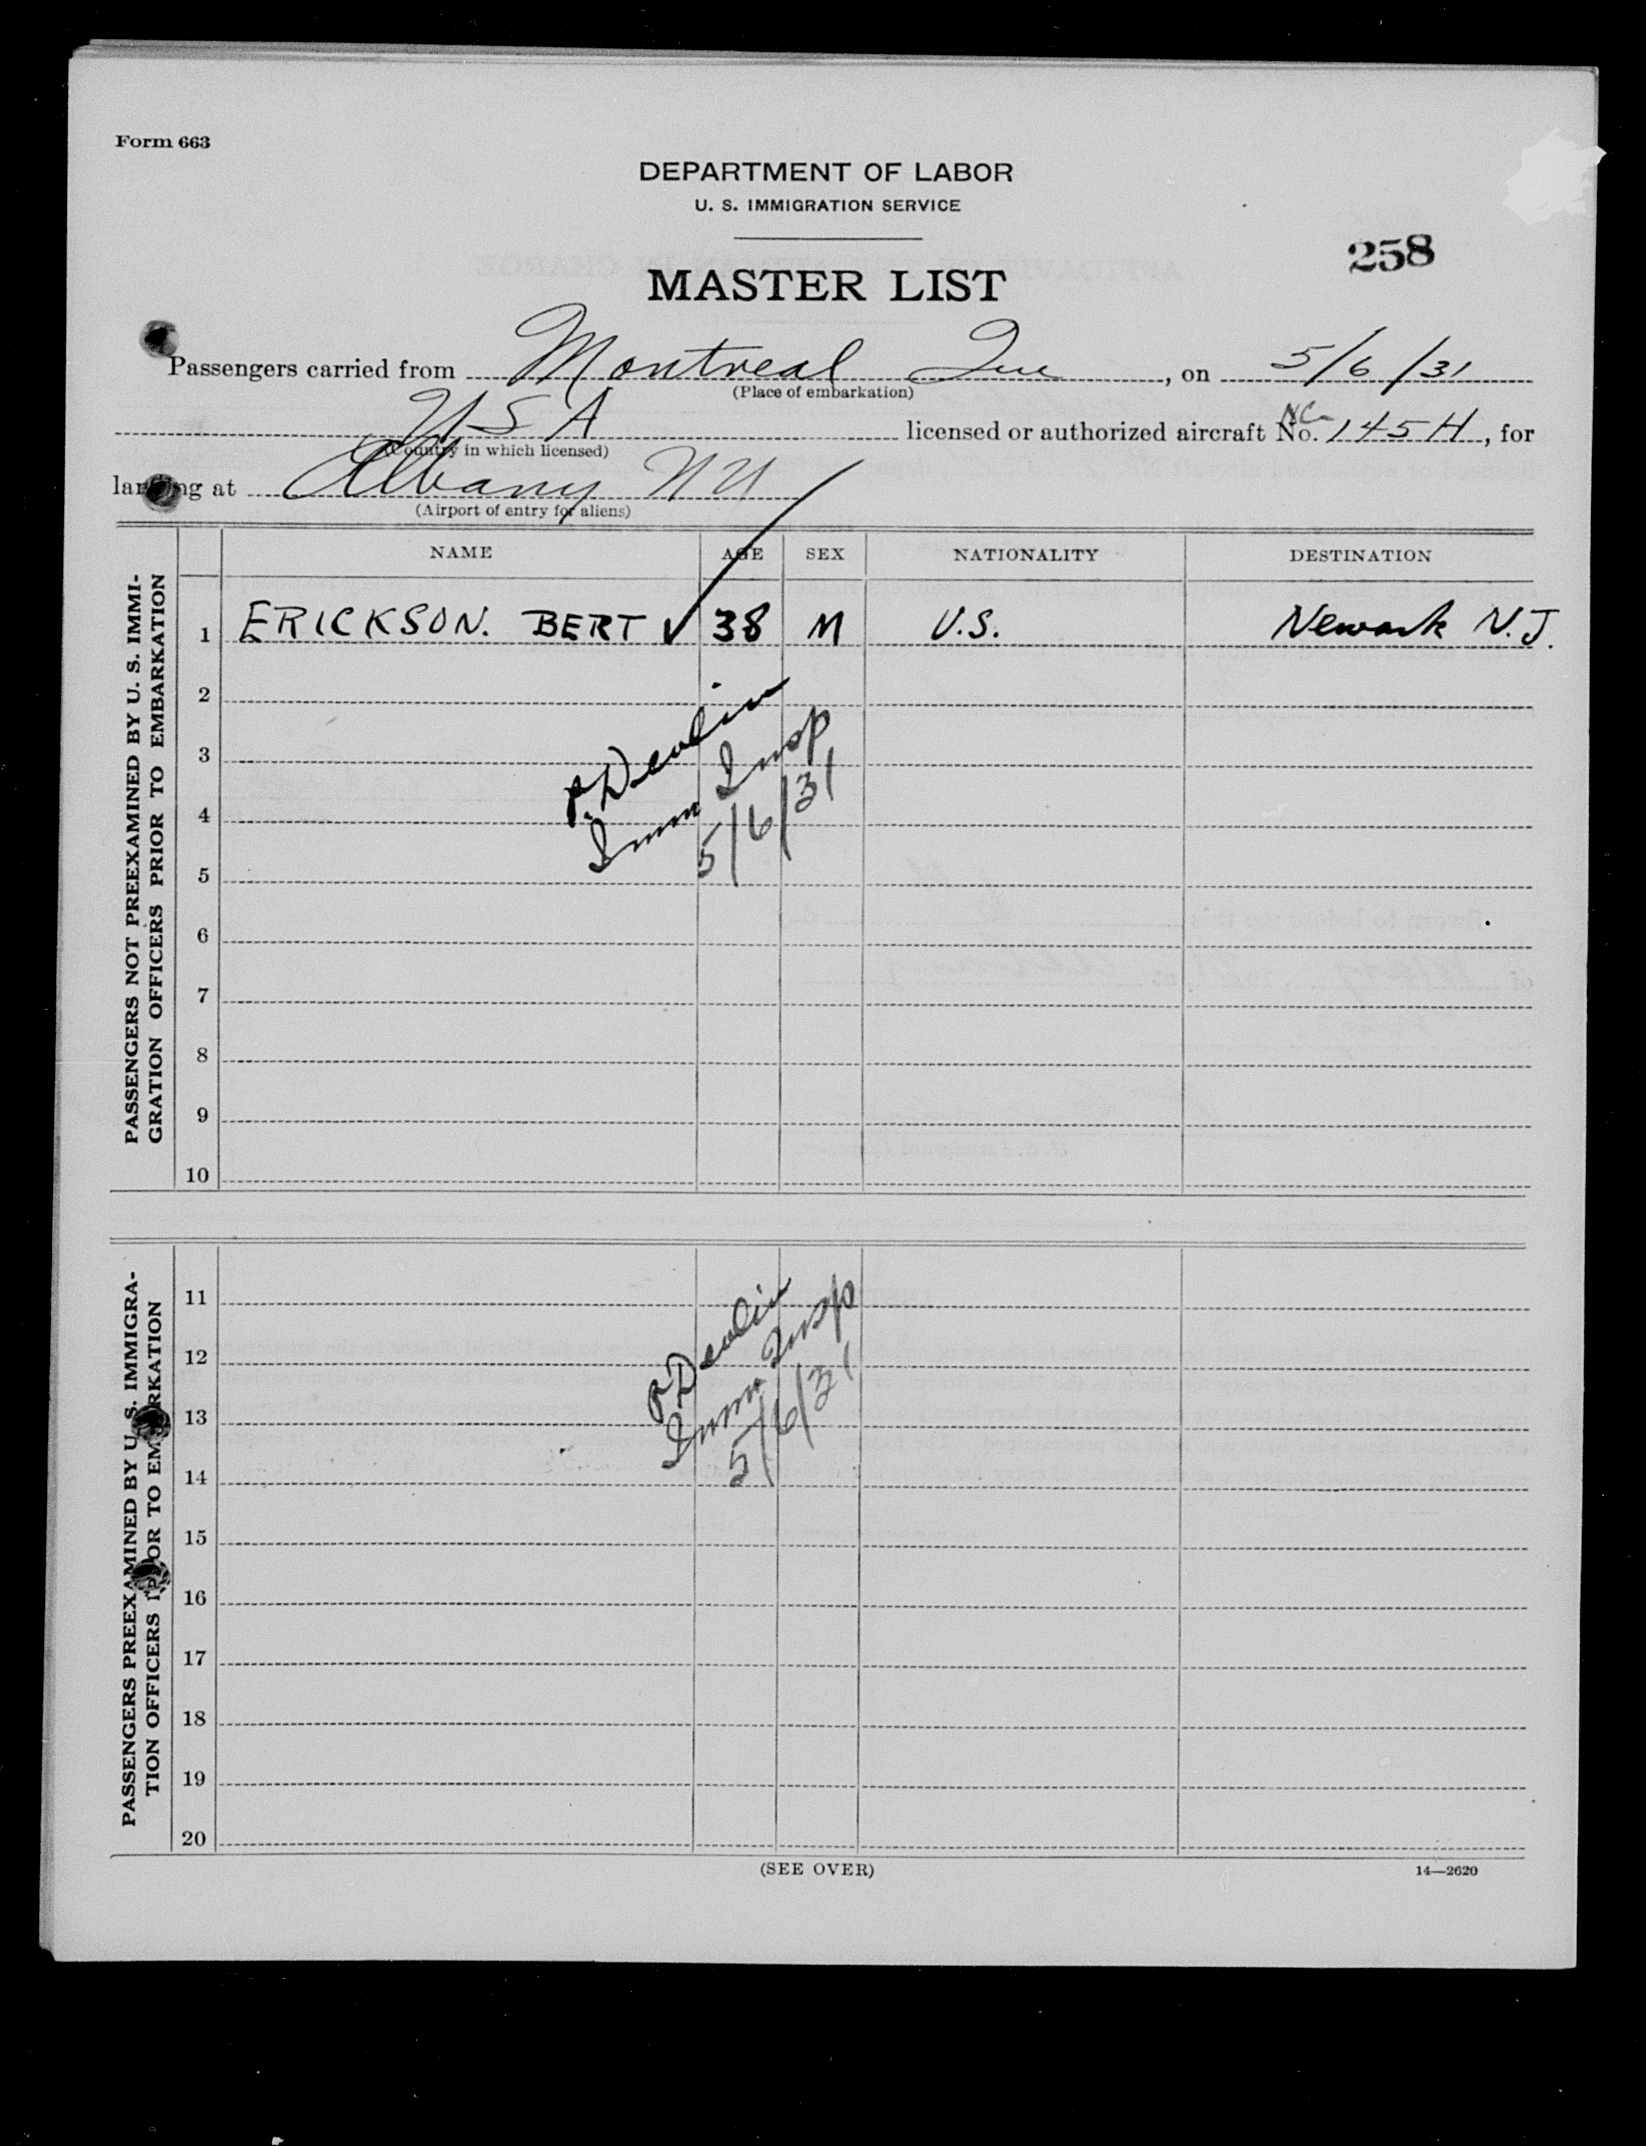 Form 663
DEPARTMENT OF LABOR
U. S. IMMIGRATION SERVICE
258
MASTER LIST
Passengers carried from Montreal Que, on 5/6/31
(Place of embarkation)
USA licensed or authorized aircraft No. NC 145H, for
(Country in which licensed)
landing at Albany NY
(Airport of entry for aliens)
NAME AGE SEX NATIONALITY DESTINATION
PASSENGERS NOT PREEXAMINED BY U. S. IMMI-
GRATION OFFICERS PRIOR TO EMBARKATION
1 ERICKSON. BERT ✓ 38 M U.S. Newark N.J.
2
3
4
5
6
7
8
9
10
P. Devlin
Imm Insp
5/6/31
PASSENGERS PREEXAMINED BY U. S. IMMIGRA-
TION OFFICERS PRIOR TO EMBARKATION
11
12
13
14
15
16
17
18
19
20
P Devlin
Imm Insp
5/6/31
(SEE OVER)
14—2620